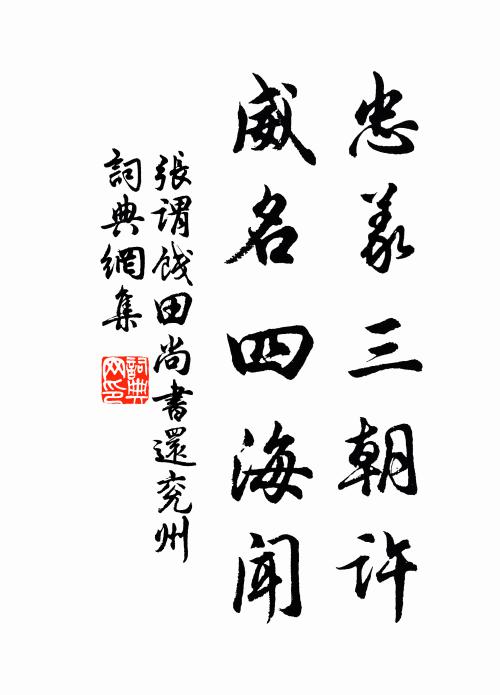 忠義三朝許
威名四海聞
張謂餞田尚書還兗州
詞典網集
詞典网印